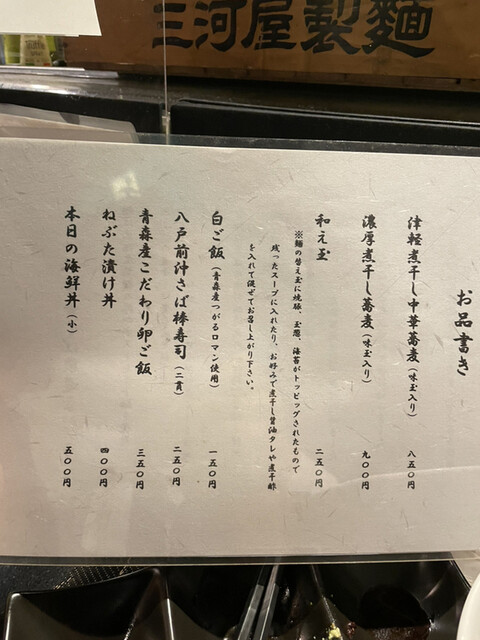 三河屋製麺
お品書き
津軽煮干し中華蕎麦(味玉入り) 八五〇円
濃厚煮干し蕎麦(味玉入り) 九〇〇円
和え玉 二五〇円
※麺の替え玉に焼豚、玉葱、海苔がトッピングされたもので
残ったスープに入れたり、お好みで煮干し醤油タレや煮干酢
を入れて混ぜてお召し上がり下さい。
白ご飯(青森産つがるロマン使用) 一五〇円
八戸前沖さば棒寿司(二貫) 二五〇円
青森産こだわり卵ご飯 三五〇円
ねぶた漬け丼 四〇〇円
本日の海鮮丼(小) 五〇〇円